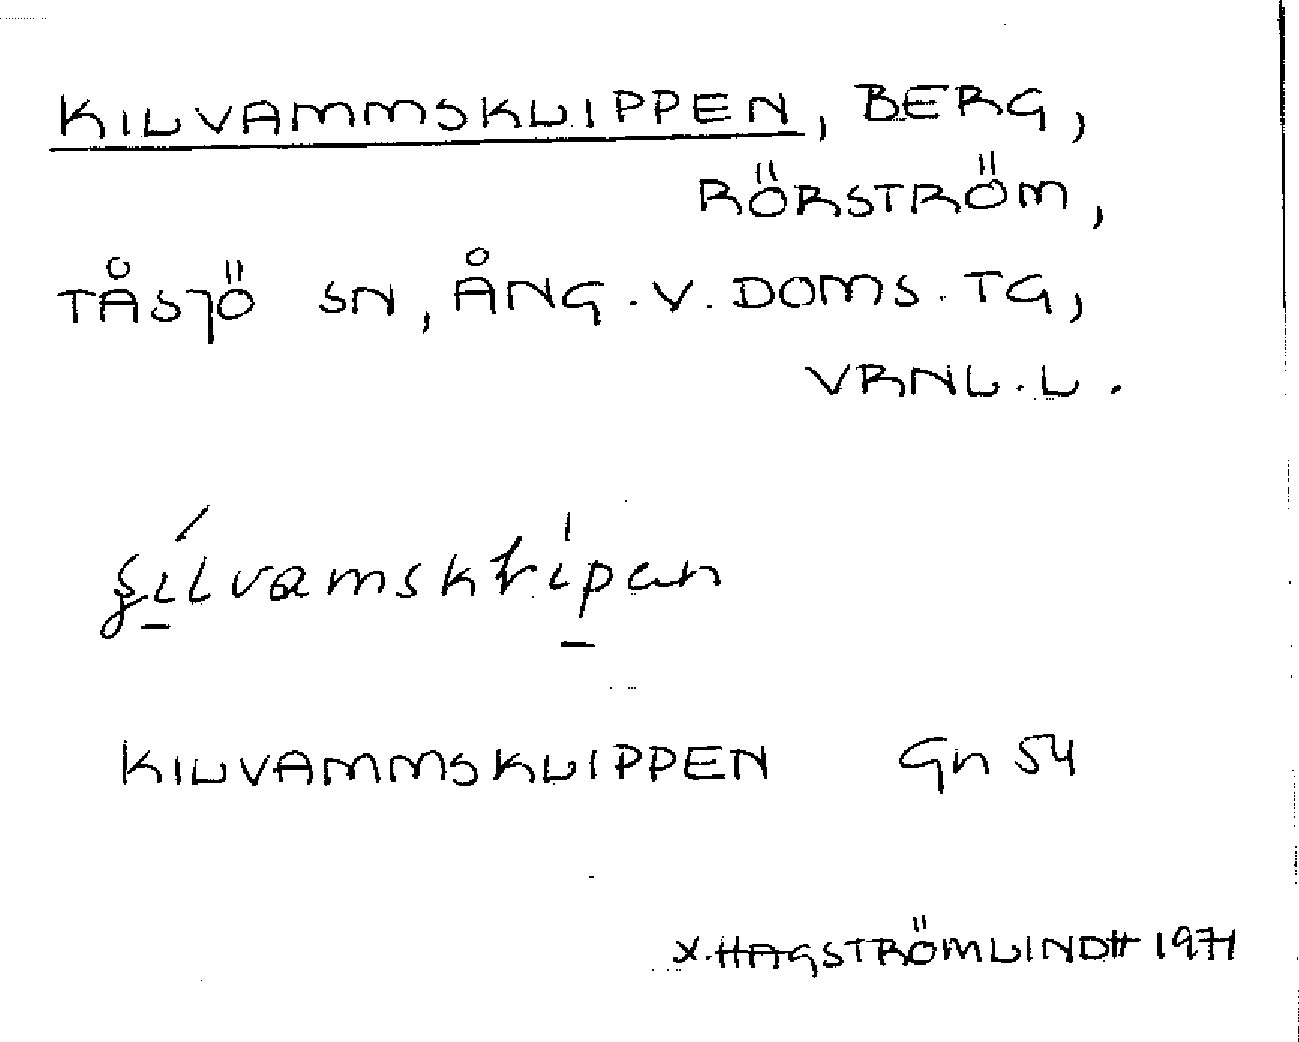 KILVAMMSKLIPPEN, BERG,
RÖRSTRÖM,
TÅSJÖ SN, ÅNG. V. DOMS. TG,
VRNL. L.
KILVAMMSKLIPPEN Gn 54
X. HAGSTRÖMLINDH 1971